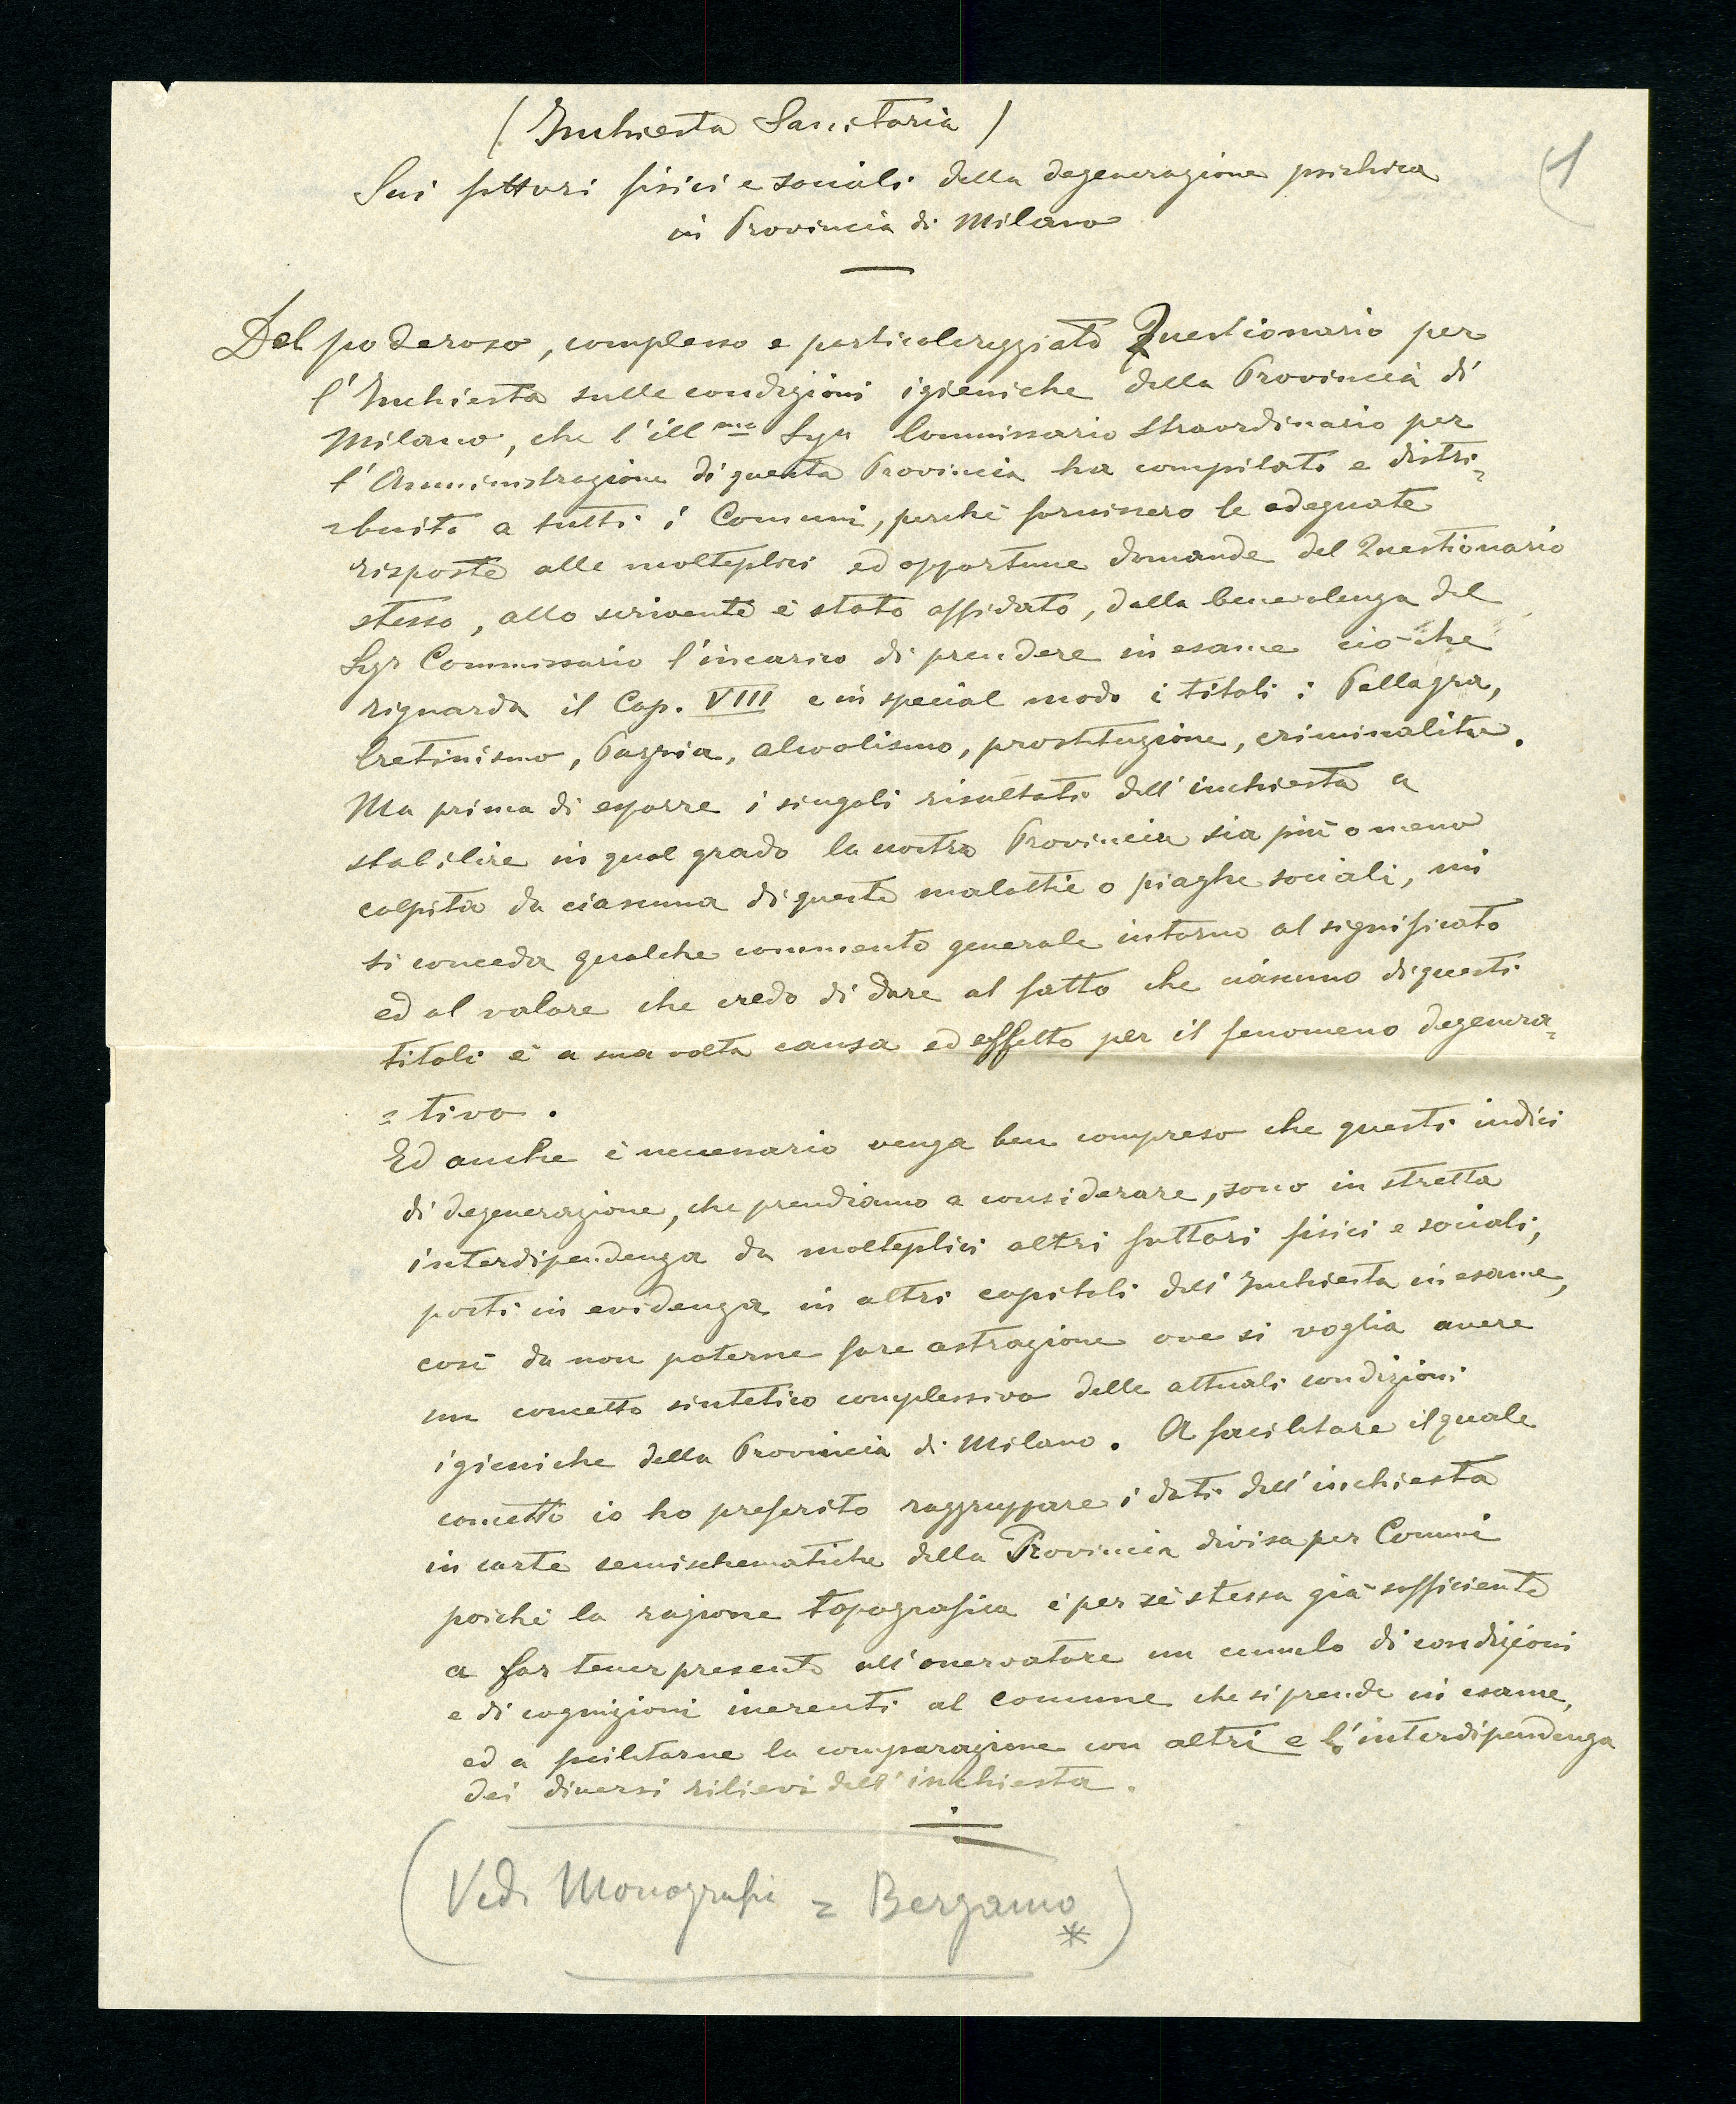 (Inchiesta Sanitaria)
1
Sui fattori fisici e sociali della degenerazione psichica
in Provincia di Milano
Del poderoso, complesso e particolareggiato Questionario per
l'Inchiesta sulle condizioni igieniche della Provincia di
Milano, che l'ill.mo Sigr Commissario Straordinario per
l'Amministrazione di questa Provincia ha compilato e distri=
=buito a tutti i Comuni, perchè fornissero le adeguate
risposte alle molteplici ed opportune domande del Questionario
stesso, allo scrivente è stato affidato, dalla benevolenza del
Sigr Commissario l'incarico di prendere in esame ciò che
riguarda il Cap. VIII e in special modo i titoli: Pellagra,
Cretinismo, Pazzia, alcoolismo, prostituzione, criminalità.
Ma prima di esporre i singoli risultati dell'inchiesta a
stabilire in qual grado la nostra Provincia sia più o meno
colpita da ciascuna di queste malattie o piaghe sociali, mi
si conceda qualche commento generale intorno al significato
ed al valore che credo di dare al fatto che ciascuno di questi
titoli è a sua volta causa ed effetto per il fenomeno degenera=
=tivo.
Ed anche è necessario venga ben compreso che questi indici
di degenerazione, che prendiamo a considerare, sono in stretta
interdipendenza da molteplici altri fattori fisici e sociali,
posti in evidenza in altri capitoli dell'Inchiesta in esame,
così da non poterne fare astrazione ove si voglia avere
un concetto sintetico complessivo delle attuali condizioni
igieniche della Provincia di Milano. A facilitare il quale
concetto io ho preferito raggruppare i dati dell'inchiesta
in carte semischematiche della Provincia divisa per Comuni
poichè la ragione topografica è per sè stessa già sufficiente
a far tener presente all'osservatore un cumulo di condizioni
e di cognizioni inerenti al comune che si prende in esame,
ed a facilitarne la comparazione con altri e l'interdipendenza
dei diversi rilievi dell'inchiesta.
(Vedi Monografie = Bergamo *)